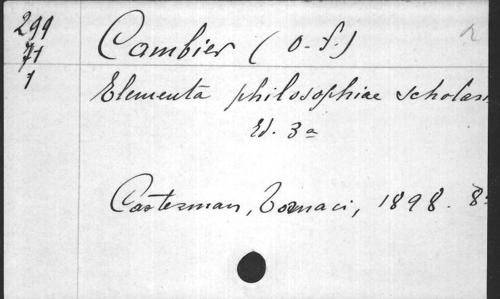 299
71
1
Cambier (O. f.)
Elementa philosophiae scholas
Ed. 3a
Casterman, Tornaci, 1898. 8º